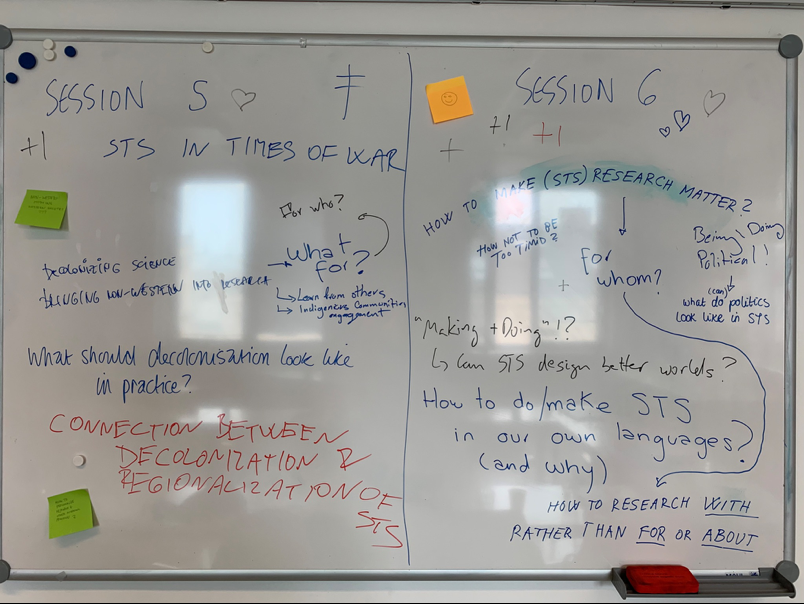 SESSION 5
+1 STS IN TIMES OF WAR
For who?
DECOLONIZING SCIENCE
BRINGING NON-WESTERN INTO RESEARCH
What for?
Learn from others
Indigenous Communities engagement
What should decolonisation look like
in practice?
CONNECTION BETWEEN
DECOLONIZATION &
REGIONALIZATION OF
STS
SESSION 6
+ +1 +1
HOW TO MAKE (STS) RESEARCH MATTER?
HOW NOT TO BE
TOO TIMID?
+
for
whom?
Being\Doing
Political!!
(can)
what do politics
look like in STS
"Making + Doing"!?
Can STS design better worlds?
How to do/make STS
in our own languages?
(and why)
HOW TO RESEARCH WITH
RATHER THAN FOR OR ABOUT